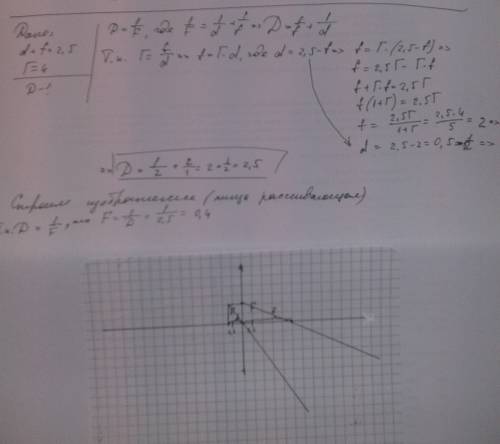 Дано:
d+f=2,5
Г=4
D-?
D = 1/F, где 1/F = 1/d + 1/f => D = 1/f + 1/d
Т.к. Г = f/d => f = Г·d, где d = 2,5-f => f = Г·(2,5-f) =>
f = 2,5Г - Г·f
f + Г·f = 2,5Г
f(1+Г) = 2,5Г
f = 2,5Г/1+Г = 2,5·4/5 = 2 =>
d = 2,5-2 = 0,5 =>
D = 1/2 + 2/1 = 2 + 1/2 = 2,5
Строим изображение (линза рассеивающая)
Т.к. D = 1/F, то F = 1/D = 1/2,5 = 0,4